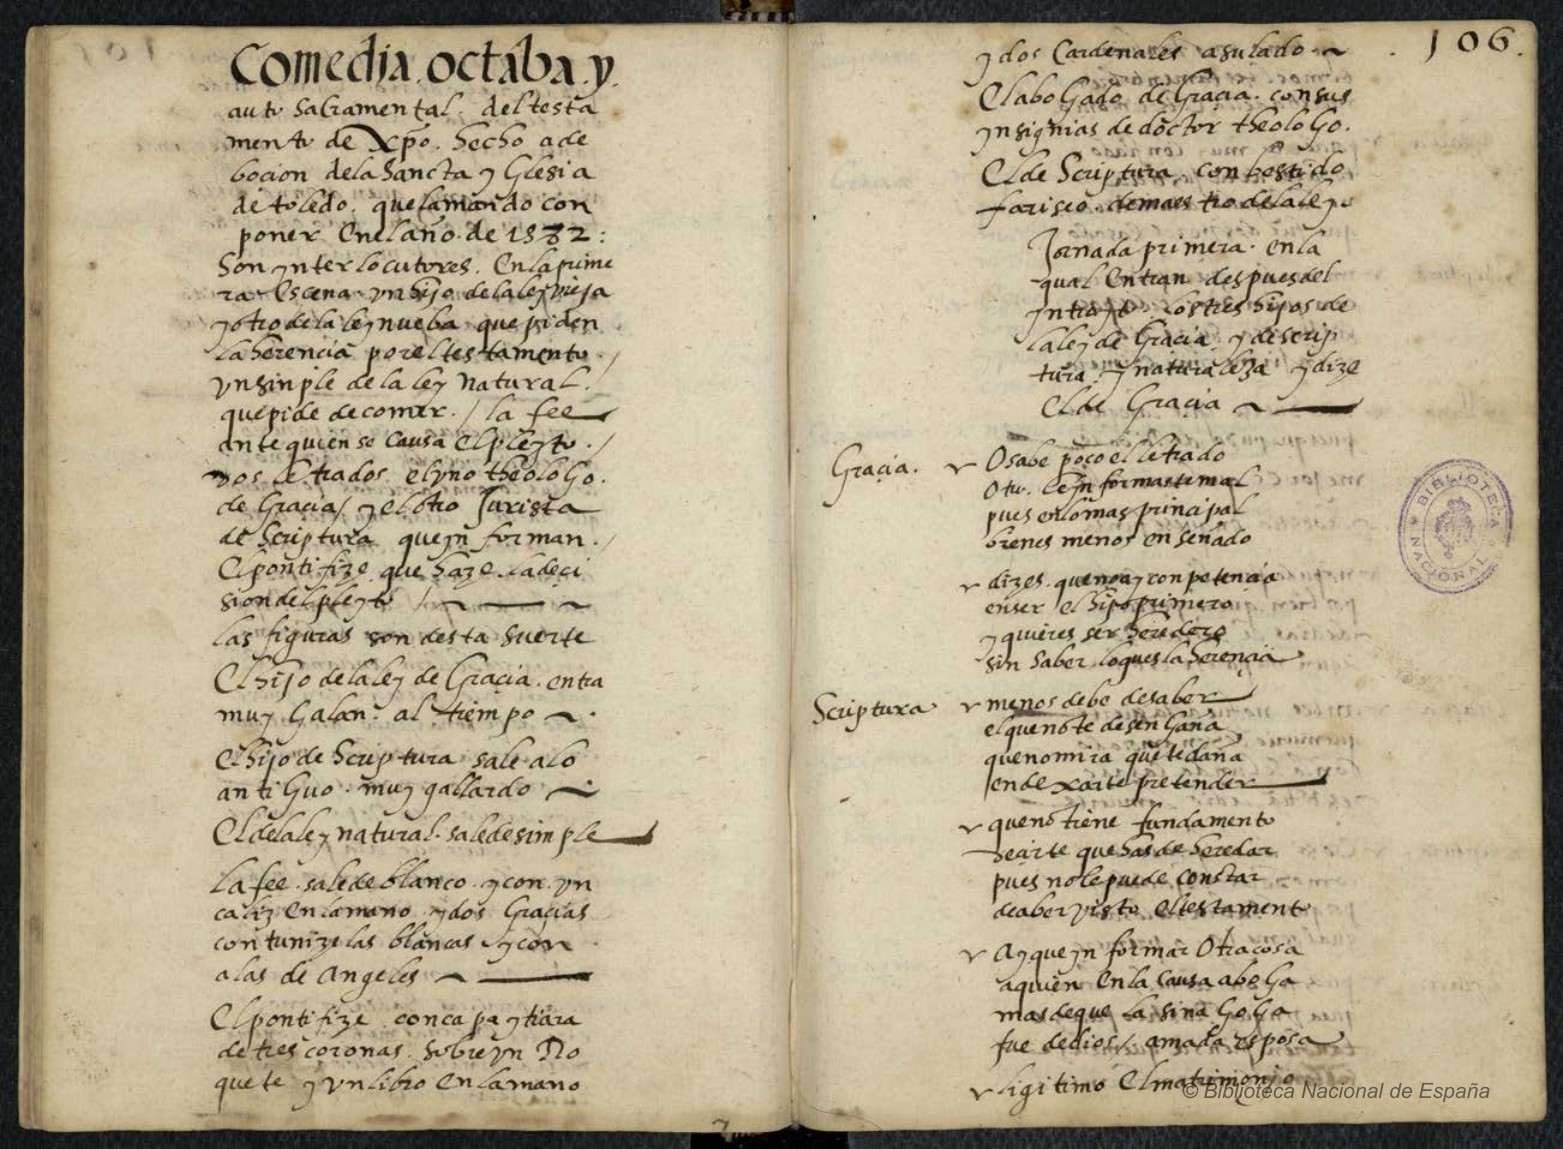 Comedia. octaba. y.
auto Sacramental. del testa
mento de Xpo. hecho a de
bocion de la Sancta yGlesia
de toledo. que lamando con
poner En el año. de 1582:
Son ynterlocutores. En la prime
ra Escena. yn hijo de la ley vieja
y otro de la ley nueba que piden
la herencia por el testamento. /
yn sinple de la ley natural. /
que pide de comer. / la fee
ante quien se causa el pleyto. /
dos letrados el yno theologo.
de Gracia / y el otro Jurista
de Scriptura que yn forman. /
El pontifize que haze la deci
sion del pleyto /
las figuras son desta suerte
El hijo de la ley de Gracia. entra
muy Galan. al tiempo
El hijo de Scriptura sale a lo
antiguo. muy gallardo
El de la ley natural. sale de simple
La fee. sale de blanco. y con. yn
caliz En la mano. y dos Gracias
con tunizelas blancas. y con
alas de Angeles
El pontifize con capa y tiara
de tres coronas. Sobre yn Ro
quete y yn libro En la mano
y dos Cardenales a su lado.
106.
El abogado de Gracia. con sus
ynsignias de doctor theologo.
El de Scriptura. con bestido
fariseo. de maestro de la ley.
Jornada primera. en la
qual Entran despues del
yntroyto. los tres hijos de
la ley de Gracia. y de scrip
tura. y naturaleza y dize
El de Gracia
Gracia. O sabe poco el letrado
O tu. le yn formaste mal
pues en lo mas principal
bienes menos enseñado
dizes. que no ay conpetencia
en ser el hijo primero
y quieres ser heredero
sin saber lo ques la herencia
Scriptura menos debe de saber
el que no te desengaña
que no mira que te daña
en dexarte pretender
que no tiene fundamento
decirte que has de heredar
pues no le puede constar
de aber visto el testamento
Ay que yn formar Otra cosa
a quien En la causa aboga
mas de que la sinagoga
fue de dios / amada esposa
ligitimo El matrimonio
BIBLIOTECA NACIONAL
© Biblioteca Nacional de España